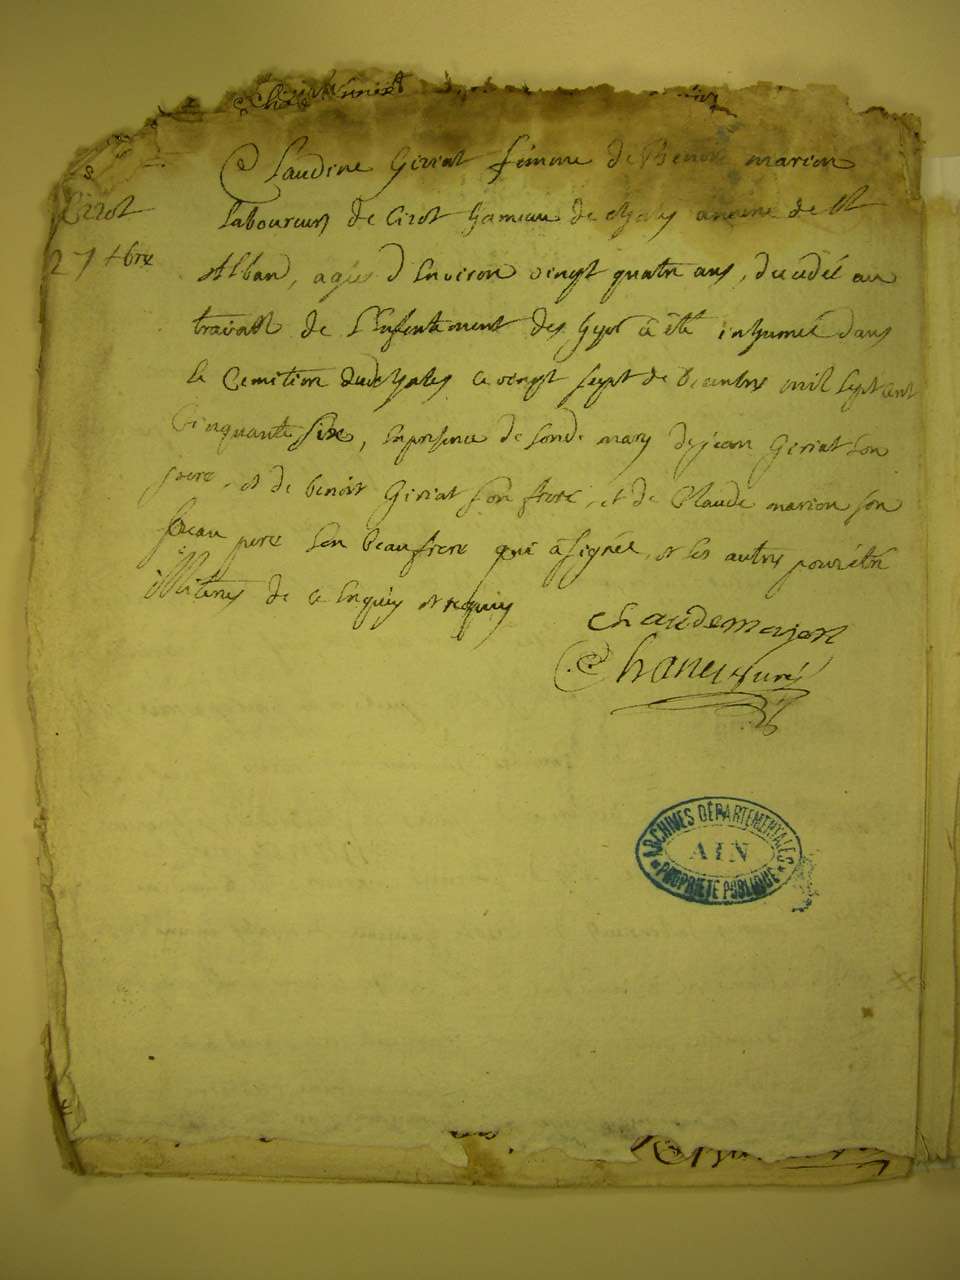 Claudine Geriat femme de Benoit marion
Cizot
laboureur de Cizot hameau de annexe de St
27 xbre
Alban, agée d'Environ vingt quatre ans, decedée au
travail de l'Enfentement des hyer a été inhumée dans
le Cemitiere ce vingt sept de decembre mil sept cent
Cinquante Six, En presence de son de. mary de jean Geriat son
pere, et de benoit Geriat son frere, et de Claude marion son
beau pere son beaufrere qui a signée, et les autres pour étre
illitères de ce Enquis et requis
Chane Curé
ARCHIVES DÉPARTEMENTALES
AIN
PROPRIÉTÉ PUBLIQUE